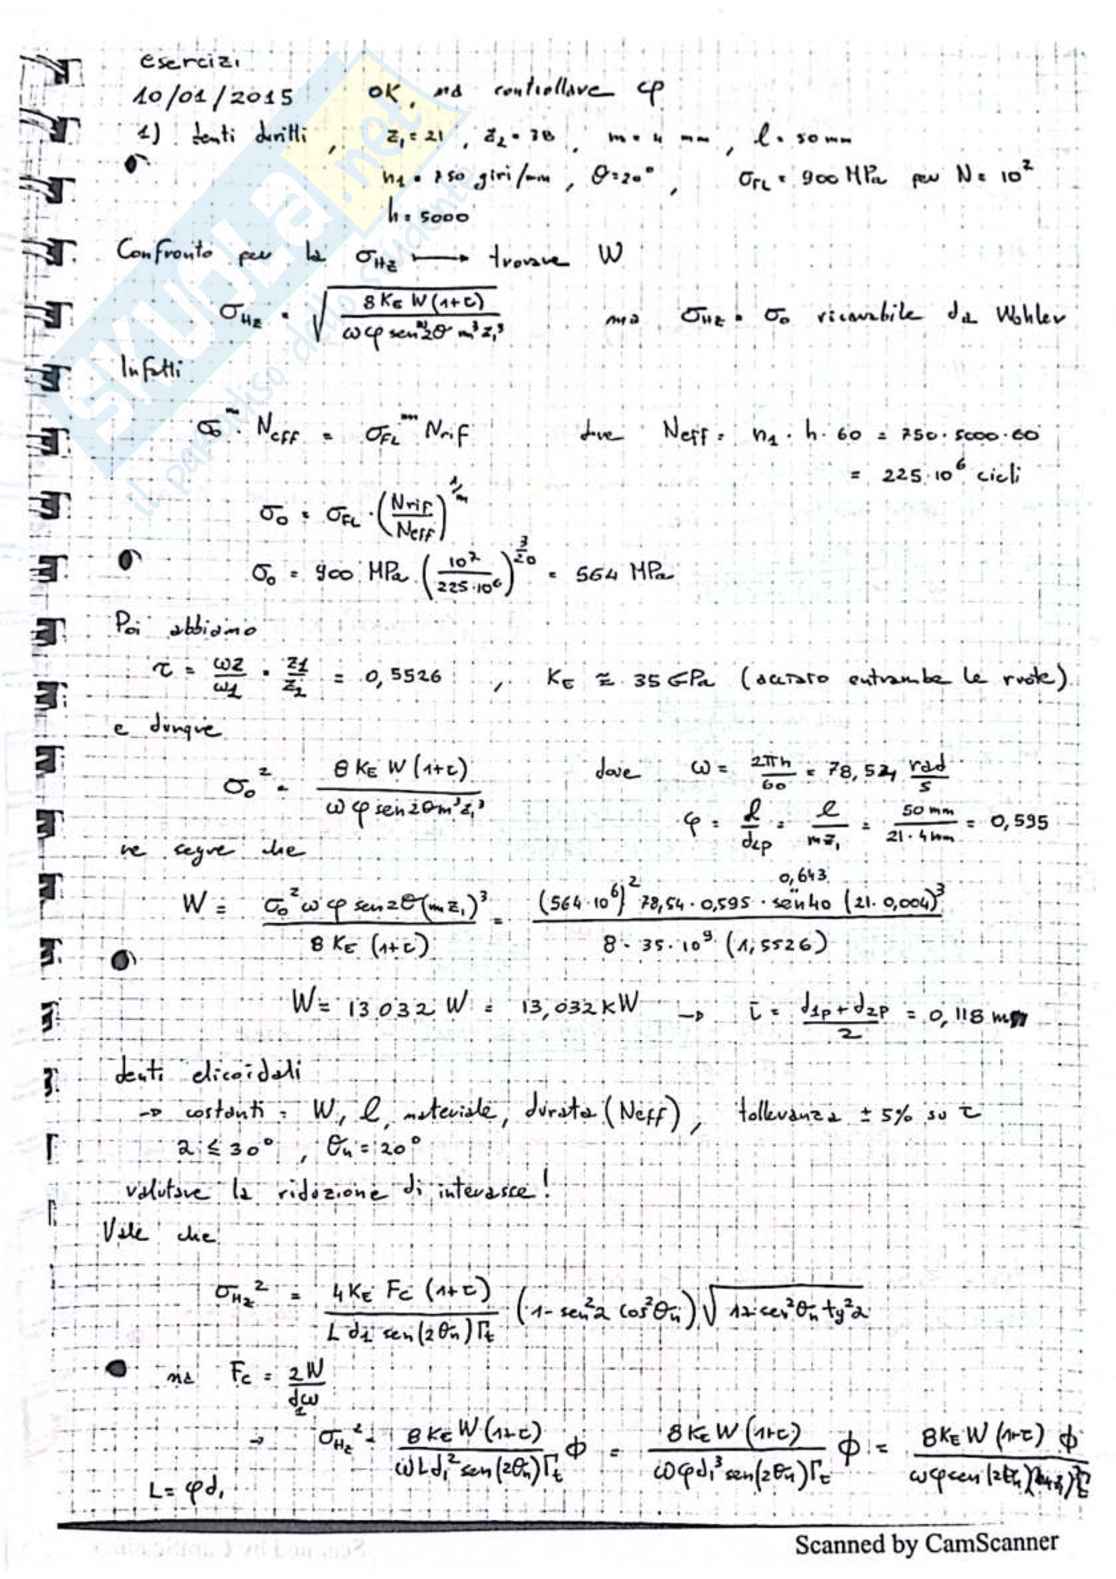 esercizi
10/01/2015 OK, ma controllare φ
1) denti diritti, z₁ = 21, z₂ = 38, m = 4 mm, l = 50 mm
n₁ = 750 giri/min, θ = 20°, σFL = 900 MPa per N = 10²
h = 5000
Confronto per la σHz → trovare W
σHz = √(8 KE W (1+τ) / ωφ sen2θ m³ z₁³) ma σHz = σ₀ ricavabile da Wohler
Infatti
σ₀^m · Neff = σFL^m Nrif dove Neff = n₁ · h · 60 = 750 · 5000 · 60
= 225 · 10⁶ cicli
σ₀ = σFL · (Nrif / Neff)^(1/m)
σ₀ = 900 MPa (10² / 225·10⁶)^(3/20) = 564 MPa
Poi abbiamo
τ = ω2/ω1 = z1/z2 = 0,5526, KE ≅ 35 GPa (acciaio entrambe le ruote)
e dunque
σ₀² = 8 KE W (1+τ) / ω φ sen2θ m³ z₁³ dove ω = 2πn/60 = 78,54 rad/s
φ = l/d1p = l/mz₁ = 50 mm / 21·4 mm = 0,595
ne segue che
W = σ₀² ω φ sen2θ (m z₁)³ / 8 KE (1+τ) = (564·10⁶)² 78,54 · 0,595 · sen40 (21·0,004)³ / 8 · 35·10⁹ (1,5526) 0,643
W = 13032 W = 13,032 kW → i = d1p + d2p / 2 = 0,118 m
denti elicoidali
→ costanti = W, l, materiale, durata (Neff), tolleranza ± 5% su τ
α ≤ 30°, θn = 20°
valutare la riduzione di interasse!
Vale che
σHz² = 4 KE Fc (1+τ) / L d1 sen(2θn) Γt (1 - sen²α cos²θn) √(1 + cos²θn tg²α)
ma Fc = 2W / d₁ω
→ σHz² = 8 KE W (1+τ) / ω L d₁² sen(2θn) Γt Φ = 8 KE W (1+τ) / ω φ d₁³ sen(2θn) Γt Φ = 8 KE W (1+τ) Φ / ω φ sen(2θn)
L = φ d₁
Scanned by CamScanner